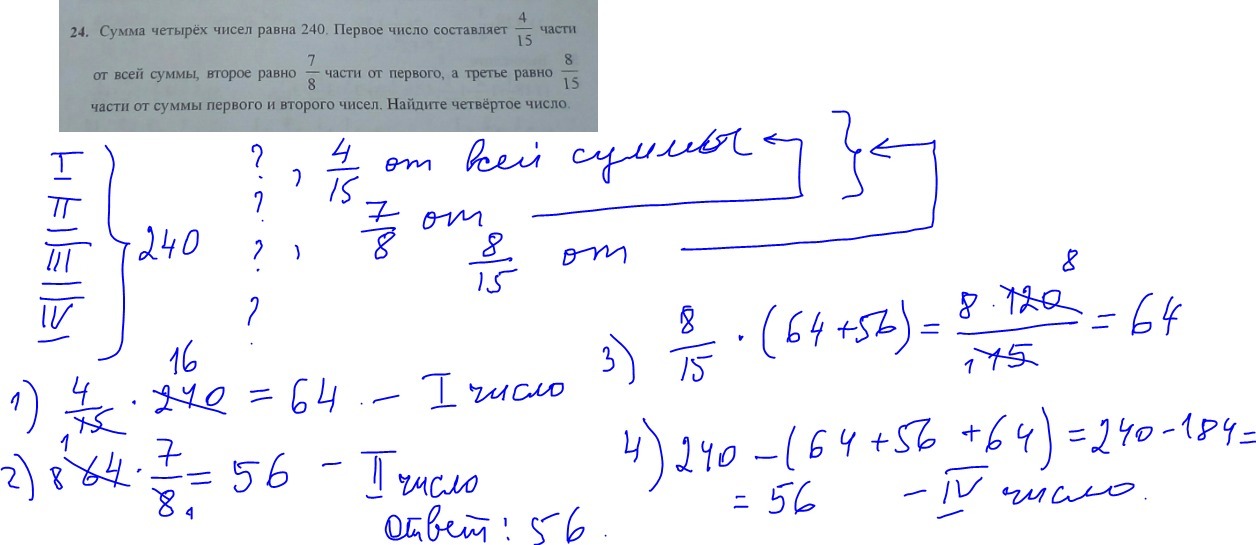 24. Сумма четырёх чисел равна 240. Первое число составляет 4/15 части
от всей суммы, второе равно 7/8 части от первого, а третье равно 8/15
части от суммы первого и второго чисел. Найдите четвёртое число.
I ? , 4/15 от всей суммы
II ? 7/8 от
III 240 ? , 8/15 от
IV ?
1) 4/15 · 240 = 64 – I число
16
1
2) 64 · 7/8 = 56 – II число
8
1
3) 8/15 · (64+56) = 8 · 120/15 = 64
8
1
4) 240 – (64 + 56 + 64) = 240 – 184 =
= 56 – IV число.
ответ: 56.